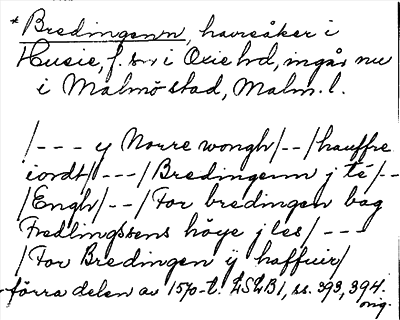 * Bredingenn, havreåker i
Husie, f. sn i Oxie hd, ingår nu
i Malmö stad, Malm. l.
/--- y Norre wongh/--/hauffre
iordt/---/Bredingenn j té/--
/Engh/--/For bredingen bag
Fredlingssens höye j les/---
/For Bredingen ÿ haffuir/
förra delen av 1570-t. LSLB1, ss. 393, 394.
orig.